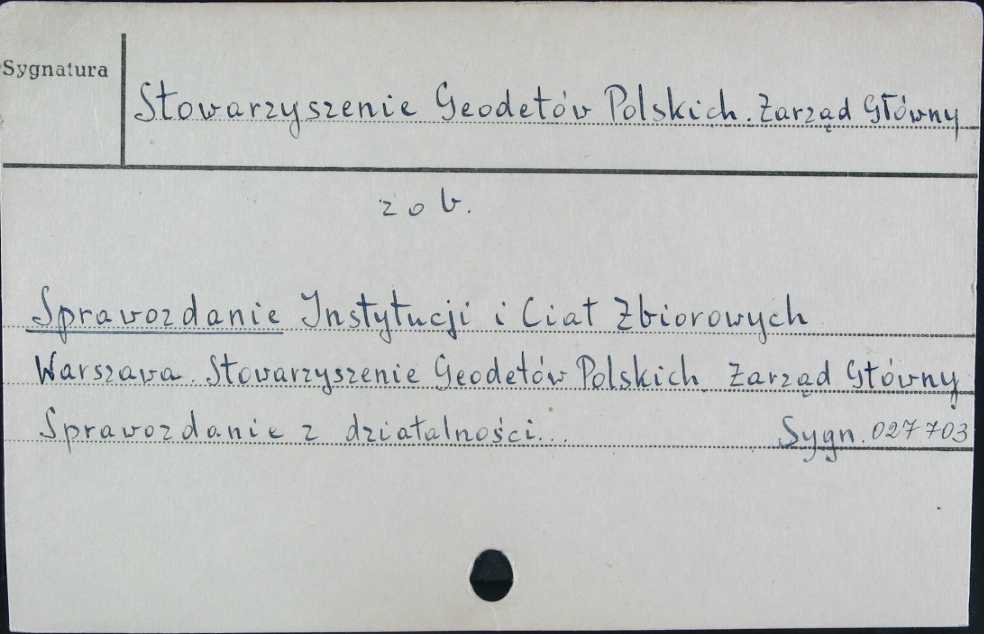 Sygnatura
Stowarzyszenie Geodetów Polskich. Zarząd Główny
zob.
Sprawozdanie Instytucji i Ciał Zbiorowych
Warszawa. Stowarzyszenie Geodetów Polskich. Zarząd Główny
Sprawozdanie z działalności... Sygn. 027703